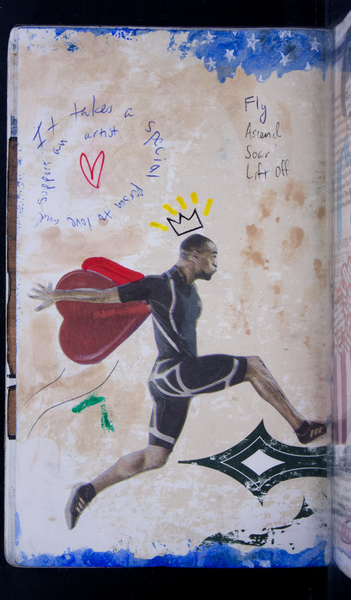 It takes a special person to love and support an artist
Fly
Ascend
Soar
Lift Off